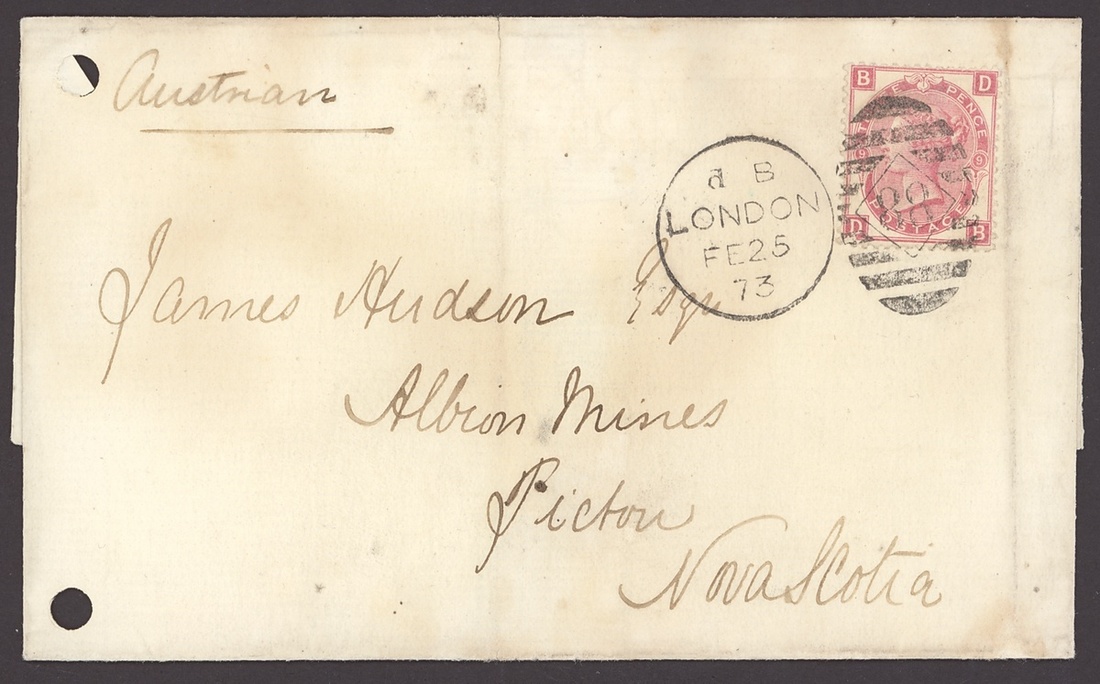 Austrian
B D
THREE PENCE
9 9
88
POSTAGE
D B
d B
LONDON
FE25
73
James Hudson Esqr
Albion Mines
Picton
Nova Scotia